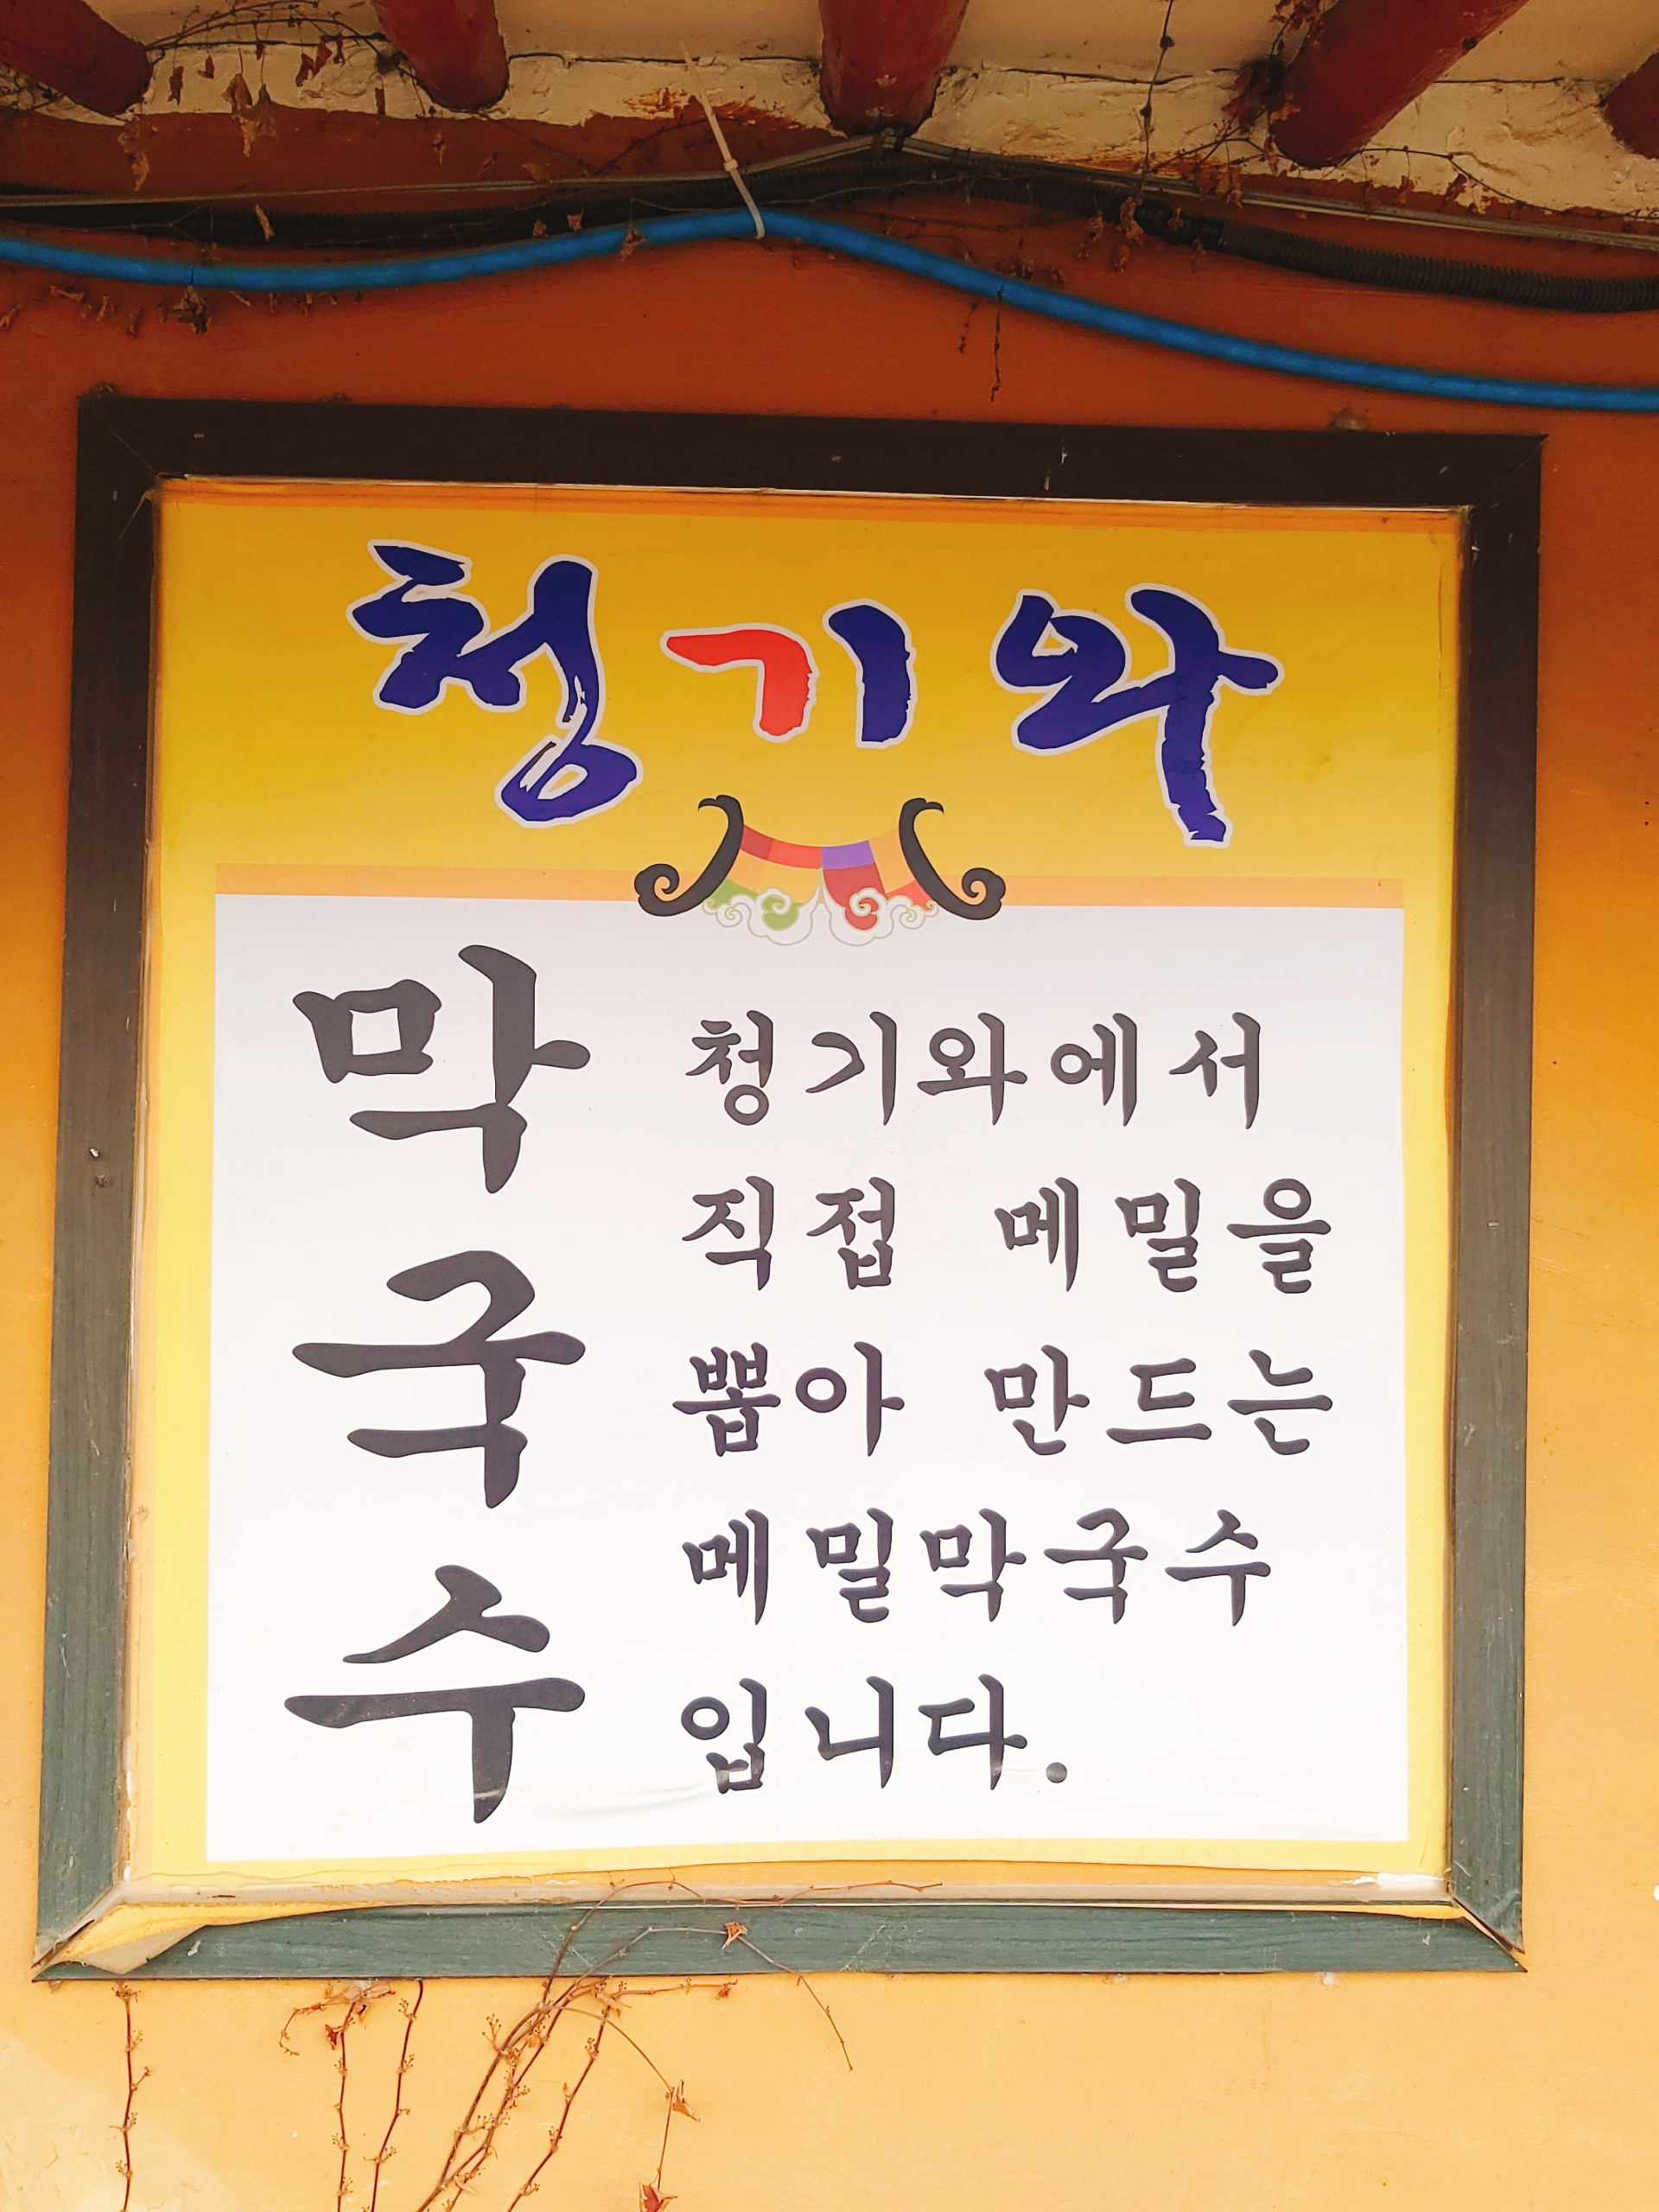 청기와
막국수
청기와에서
직접 메밀을
뽑아 만드는
메밀막국수
입니다.